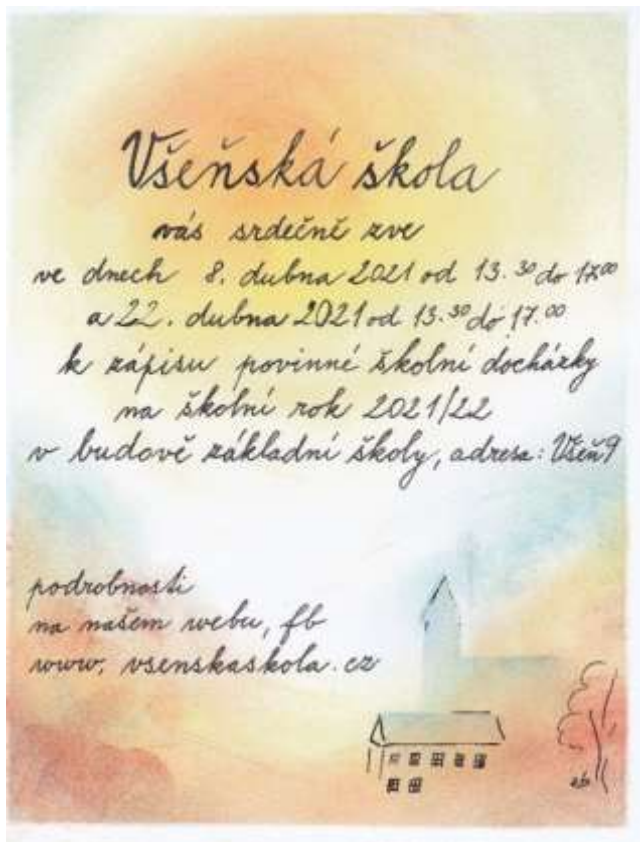 Všeňská škola
vás srdečně zve
ve dnech 8. dubna 2021 od 13.30 do 17.00
a 22. dubna 2021 od 13.30 do 17.00
k zápisu povinné školní docházky
na školní rok 2021/22
v budově základní školy, adresa: Všeň 9
podrobnosti
na našem webu, fb
www. vsenskaskola.cz